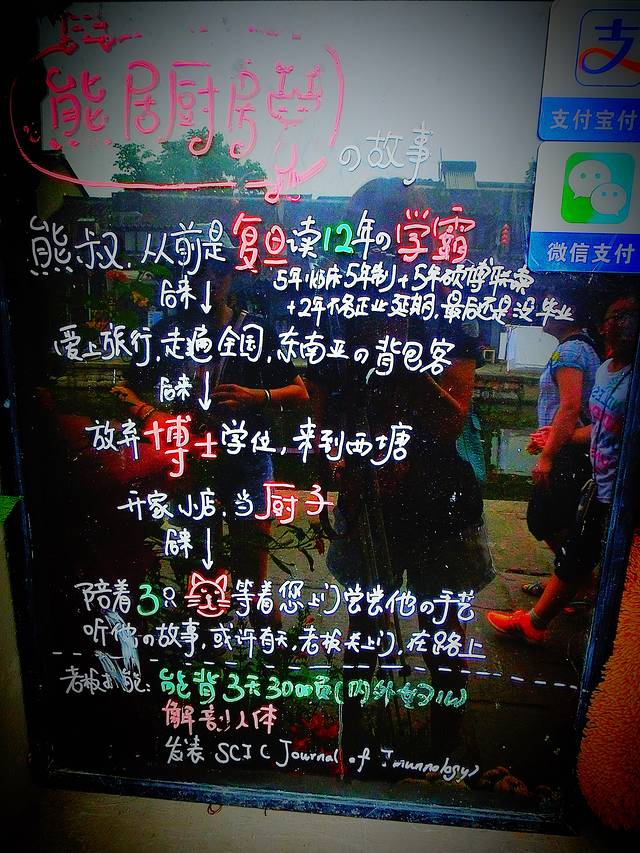 熊居厨房
の故事
支付宝付
微信支付
熊叔,从前是复旦读12年の学霸
5年临床5年制+5年硕博联读
+2年不务正业延期,最后还是没毕业
后来↓
爱上旅行,走遍全国,东南亚の背包客
后来↓
放弃博士学位,来到西塘
开家小店,当厨子
后来↓
陪着3只等着您上门尝尝他の手艺
听他の故事,或许有天,老板关上门,在路上
老板技能:能背3天300页(内外妇儿)
解剖人体
发表SCI(Journal of Immunology)